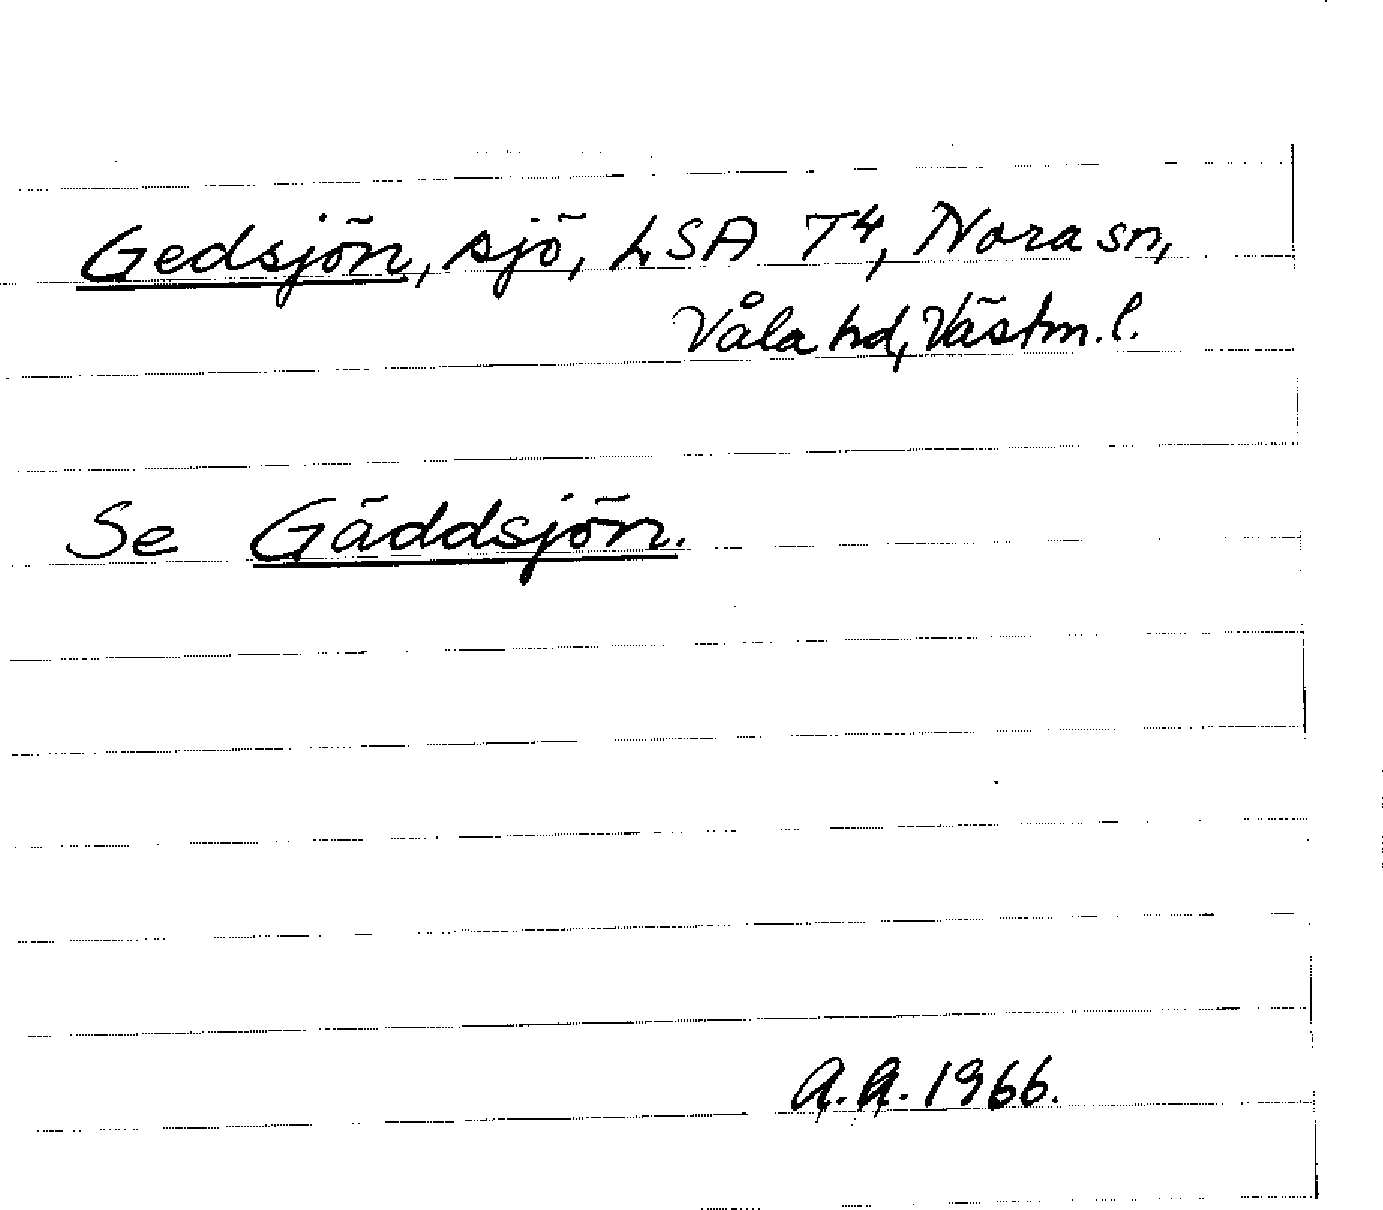 Gedsjön, sjö, LSA T4, Nora sn,
Våla hd, Västm. l.
Se Gäddsjön.
A.A. 1966.